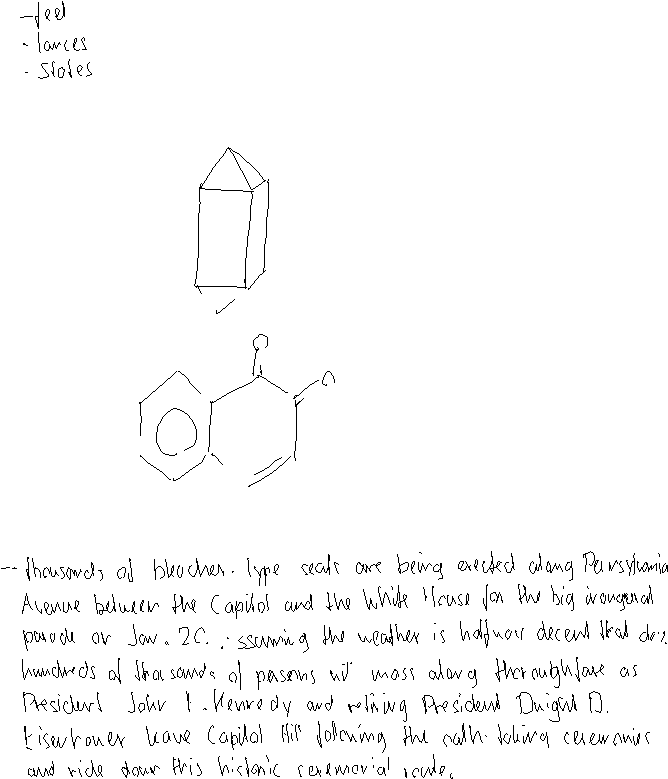 - feet
- lances
- States
O
- thousands of bleacher-type seats are being erected along Pennsylvania
Avenue between the Capitol and the White House for the big inaugural
parade on Jan. 20. assuming the weather is halfway decent that day
hundreds of thousands of persons will mass along thoroughfare as
President John F. Kennedy and retiring President Dwight D.
Eisenhower leave Capitol Hill following the oath-taking ceremonies
and ride down this historic ceremonial route.